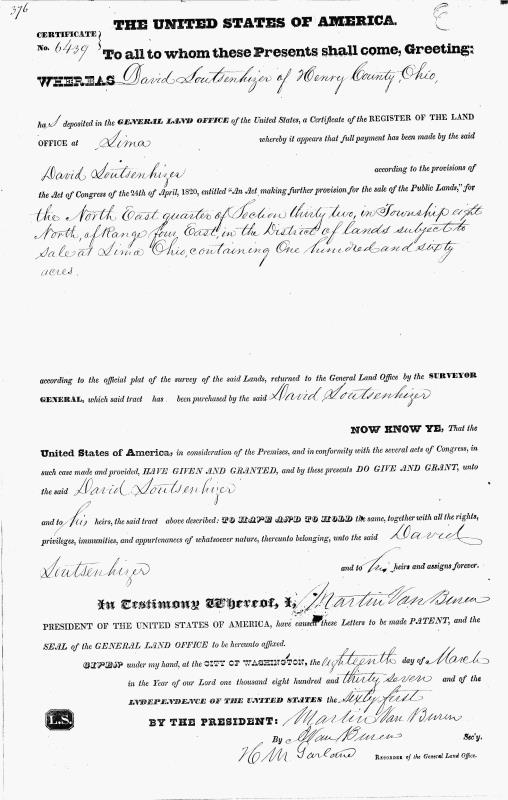 376
THE UNITED STATES OF AMERICA.
CERTIFICATE
No. 6439
To all to whom these Presents shall come, Greeting:
WHEREAS David Soutsenhizer of Henry County, Ohio,
ha s deposited in the GENERAL LAND OFFICE of the United States, a Certificate of the REGISTER OF THE LAND
OFFICE at Lima whereby it appears that full payment has been made by the said
David Soutsenhizer according to the provisions of
the Act of Congress of the 24th of April, 1820, entitled "An Act making further provision for the sale of the Public Lands," for
the North East quarter of Section thirty two, in Township eight
North, of Range four East, in the District of lands subject to
sale at Lima Ohio, containing One hundred and sixty
acres.
according to the official plat of the survey of the said Lands, returned to the General Land Office by the SURVEYOR
GENERAL, which said tract has been purchased by the said David Soutsenhizer
NOW KNOW YE, That the
United States of America, in consideration of the Premises, and in conformity with the several acts of Congress, in
such case made and provided, HAVE GIVEN AND GRANTED, and by these presents DO GIVE AND GRANT, unto
the said David Soutsenhizer
and to his heirs, the said tract above described: TO HAVE AND TO HOLD the same, together with all the rights,
privileges, immunities, and appurtenances of whatsoever nature, thereunto belonging, unto the said David
Soutsenhizer and to his heirs and assigns forever.
In Testimony Whereof, I, Martin Van Buren
PRESIDENT OF THE UNITED STATES OF AMERICA, have caused these Letters to be made PATENT, and the
SEAL of the GENERAL LAND OFFICE to be hereunto affixed.
GIVEN under my hand, at the CITY OF WASHINGTON, the eighteenth day of March
in the Year of our Lord one thousand eight hundred and thirty seven and of the
INDEPENDENCE OF THE UNITED STATES the sixty first
L.S.
BY THE PRESIDENT: Martin Van Buren
By A Van Buren Sec'y.
H M Garland RECORDER of the General Land Office.